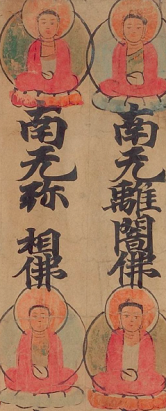 南无離闇佛
南无弥相佛